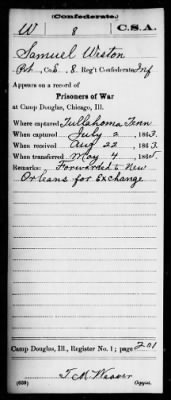 (Confederate.)
W 8 C.S.A.
Samuel Weston
Pvt, Co. , 8. Reg't Confederate Inf
Appears on a record of
Prisoners of War
at Camp Douglas, Chicago, Ill.
Where captured Tullahoma Tenn
When captured July 2, 1863.
When received Aug 22, 1863.
When transferred May 4, 1865.
Remarks: Forwarded to New
Orleans for Exchange
Camp Douglas, Ill., Register No. 1; page 201
(639) T. M. Copyist.